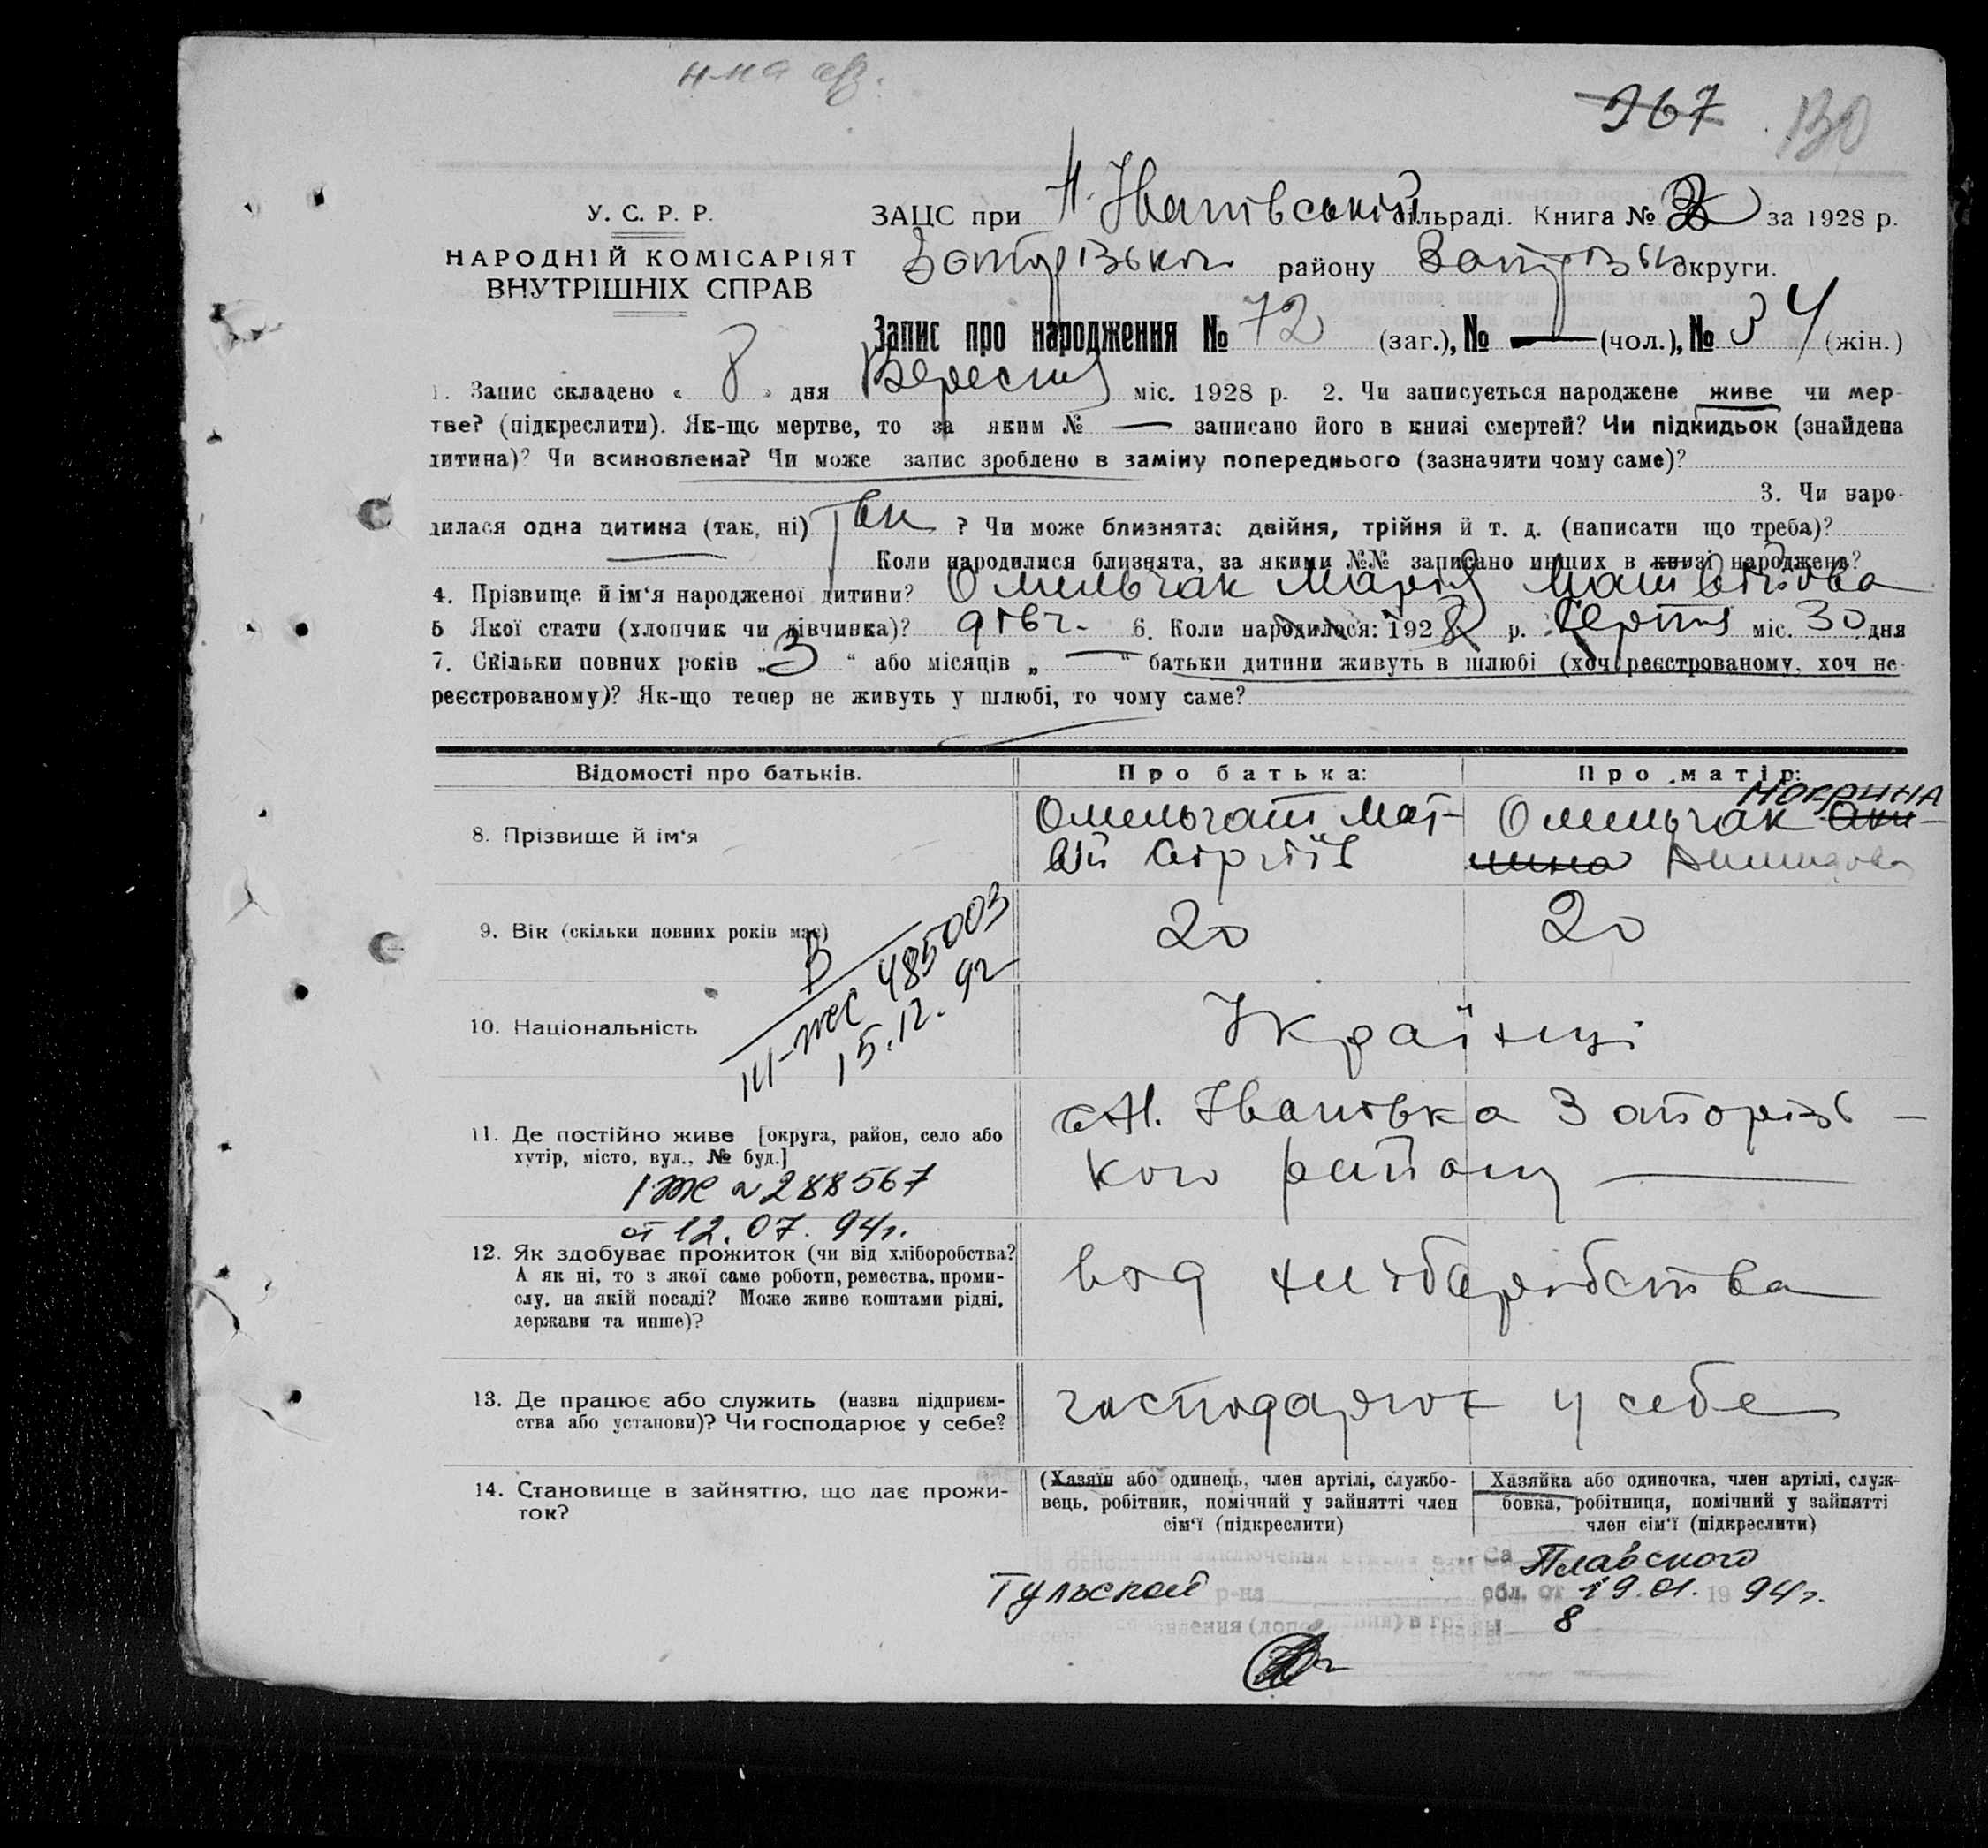 367 130
У. С. Р. Р.
НАРОДНІЙ КОМІСАРІЯТ
ВНУТРІШНІХ СПРАВ
ЗАЦС при Н. Іванівській сільраді. Книга № 3 за 1928 р.
Запорізького району Запорізьк округи.
Запис про народження № 72 (заг.), № — (чол.), № 34 (жін.)
1. Запис складено « 8 » дня Вересня міс. 1928 р. 2. Чи записується народжене живе чи мер-
тве? (підкреслити). Як-що мертве, то за яким № — записано його в книзі смертей? Чи підкидьок (знайдена
дитина)? Чи всиновлена? Чи може запис зроблено в заміну попереднього (зазначити чому саме)?
3. Чи наро-
дилася одна дитина (так, ні) Так ? Чи може близнята: двійня, трійня й т. д. (написати що треба)?
Коли народилися близнята, за якими №№ записано инших в книзі народжень?
4. Прізвище й ім'я народженої дитини? Омельчак Марія Матвійова
5 Якої стати (хлопчик чи дівчинка)? дівч. 6. Коли народилося: 1928 р. Серпня міс. 30 дня
7. Скільки повних років „ 3 “ або місяців „ — “ батьки дитини живуть в шлюбі (хоч реєстрованому, хоч не-
реєстрованому)? Як-що тепер не живуть у шлюбі, то чому саме?
Відомості про батьків. Про батька: Про матір:
8. Прізвище й ім'я Омельчак Мат-
вій Сергіїв
Омельчак
9. Вік (скільки повних років має) 20 20
В
III-ЖС 485003
15.12.92
10. Національність Українці
11. Де постійно живе [округа, район, село або
хутір, місто, вул., № буд.]
с Н. Іванівка Запорізь-
кого району
I ЖС № 288567
от 12.07.94г.
12. Як здобуває прожиток (чи від хліборобства?
А як ні, то з якої саме роботи, ремества, проми-
слу, на якій посаді? Може живе коштами рідні,
держави та инше)?
від хліборобства
13. Де працює або служить (назва підприєм-
ства або установи)? Чи господарює у себе?
господарює у себе
14. Становище в зайняттю, що дає прожи-
ток?
(Хазяїн або одинець, член артілі, службо-
вець, робітник, помічний у зайнятті член
сім'ї (підкреслити)
Хазяйка або одиночка, член артілі, служ-
бовка, робітниця, помічний у зайнятті
член сім'ї (підкреслити)
Плавского
Тульской р-на обл. от 19.01. 1994г.
8